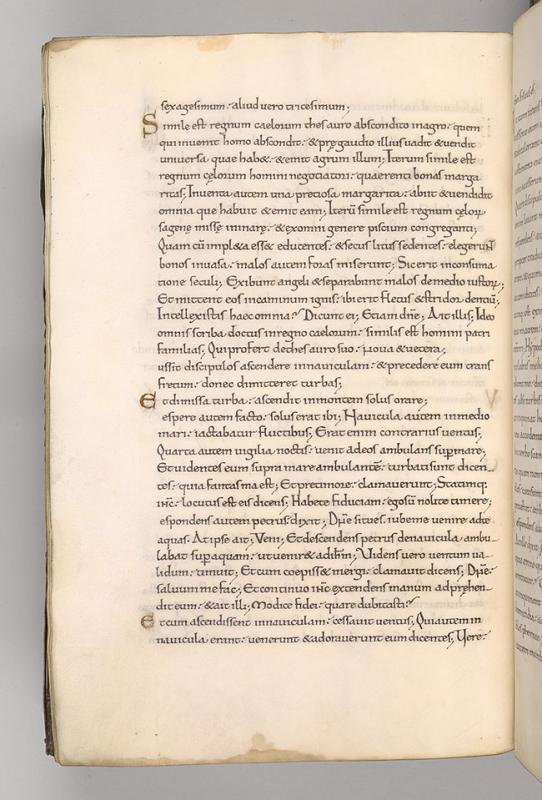 sexagesimum. aliud vero tricesimum;
Simile est regnum caelorum thesauro abscondito in agro. quem
qui invenit homo abscondit. & prę gaudio illius vadit & vendit
universa quae hab&. & emit agrum illum; Iterum simile est
regnum cęlorum homini negotiatori. quaerenti bonas marga
ritas; Inventa autem una preciosa margarita. abiit & vendidit
omnia que habuit & emit eam; Iterū simile est regnum cęlorꝝ
sagenę missę in mare. & ex omni genere piscium congreganti;
Quam cū impl&a ess& educentes. & secus litus sedentes. elegerunt
bonos in vasa. malos autem foras miserunt; Sic erit in consuma
tione seculi; Exibunt angeli & separabunt malos de medio iustorꝝ;
Et mittent eos in caminum ignis. ibi erit fletus & stridor dentiū;
Intellexistis haec omnia? Dicunt ei; Etiam dn̄e; Ait illis; Ideo
omnis scriba doctus in regno caelorum. similis est homini patri
familias; Qui profert de thesauro suo. nova & vetera;
ussit discipulos ascendere in naviculam. & precedere eum trans
fretum. donec dimitteret turbas;
Et dimissa turba. ascendit in montem solus orare;
espero autem facto. solus erat ibi; Navicula autem in medio
mari. iactabatur fluctibus; Erat enim contrarius ventus;
Quarta autem vigilia noctis. venit ad eos ambulans sup mare;
Et videntes eum supra mare ambulantē. turbati sunt dicen
tes. quia fantasma est; Et pre timore. clamaverunt; Statimq;
ihc̄. locutus est eis dicens; Habete fiduciam. ego sū nolite timere;
espondens autem petrus. dixit; Dn̄e si tu es. iube me venire ad te
aquas. At ipse ait; Veni; Et descendens petrus de navicula. ambu
labat sup aquam. ut venir& ad ih̄m; Videns vero ventum va
lidum. timuit; Et cum coepiss& mergi. clamavit dicens; Dn̄e.
salvum me fac; Et continuo ihc̄ extendens manum adprehen
dit eum. & ait illi; Modice fidei. quare dubitasti?
Et cum ascendissent in naviculam. cessavit ventus; Qui autem in
navicula erant. venerunt & adoraverunt eum dicentes; Vere.